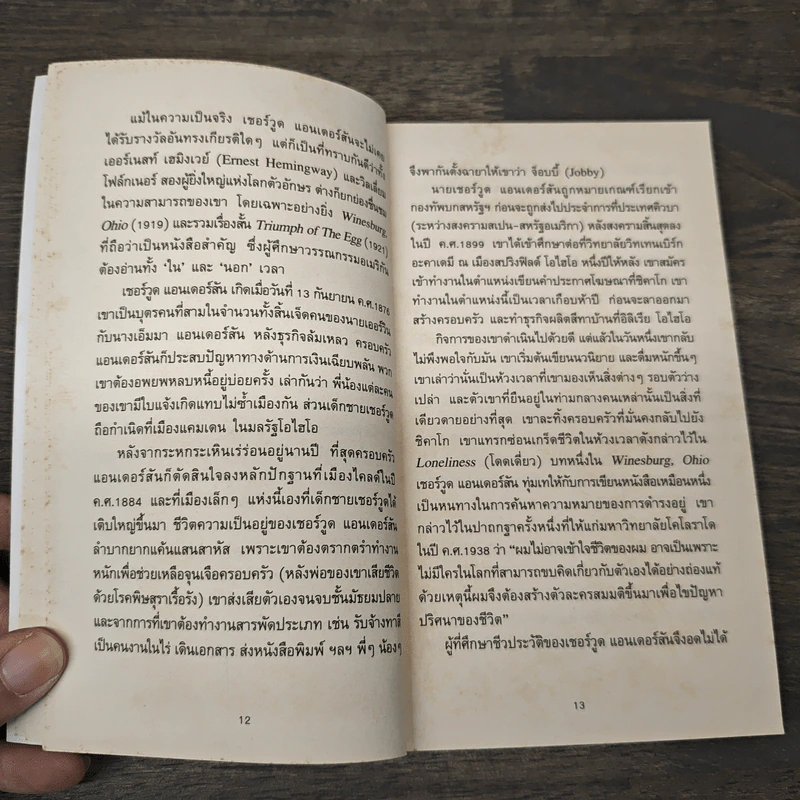 แม้ในความเป็นจริง เชอร์วูด แอนเดอร์สันจะไม่เคย
ได้รับรางวัลอันทรงเกียรติใดๆ แต่ก็เป็นที่ทราบกันดีว่าทั้ง
เออร์เนสท์ เฮมิงเวย์ (Ernest Hemingway) และวิลเลี่ยม
โฟล์กเนอร์ สองผู้ยิ่งใหญ่แห่งโลกตัวอักษร ต่างก็ยกย่องชื่นชม
ในความสามารถของเขา โดยเฉพาะอย่างยิ่ง Winesburg,
Ohio (1919) และรวมเรื่องสั้น Triumph of The Egg (1921)
ที่ถือว่าเป็นหนังสือสำคัญ ซึ่งผู้ศึกษาวรรณกรรมอเมริกัน
ต้องอ่านทั้ง 'ใน' และ 'นอก' เวลา
เชอร์วูด แอนเดอร์สัน เกิดเมื่อวันที่ 13 กันยายน ค.ศ.1876
เขาเป็นบุตรคนที่สามในจำนวนทั้งสิ้นเจ็ดคนของนายเออร์วิน
กับนางเอ็มมา แอนเดอร์สัน หลังธุรกิจล้มเหลว ครอบครัว
แอนเดอร์สันก็ประสบปัญหาทางด้านการเงินเฉียบพลัน พวก
เขาต้องอพยพหลบหนีอยู่บ่อยครั้ง เล่ากันว่า พี่น้องแต่ละคน
ของเขามีใบแจ้งเกิดแทบไม่ซ้ำเมืองกัน ส่วนเด็กชายเชอร์วูด
ถือกำเนิดที่เมืองแคมเดน ในมลรัฐโอไฮโอ
หลังจากระหกระเหินเร่ร่อนอยู่นานปี ที่สุดครอบครัว
แอนเดอร์สันก็ตัดสินใจลงหลักปักฐานที่เมืองไคลด์ในปี
ค.ศ.1884 และที่เมืองเล็กๆ แห่งนี้เองที่เด็กชายเชอร์วูดได้
เติบใหญ่ขึ้นมา ชีวิตความเป็นอยู่ของเชอร์วูด แอนเดอร์สัน
ลำบากยากแค้นแสนสาหัส เพราะเขาต้องตรากตรำทำงาน
หนักเพื่อช่วยเหลือจุนเจือครอบครัว (หลังพ่อของเขาเสียชีวิต
ด้วยโรคพิษสุราเรื้อรัง) เขาส่งเสียตัวเองจนจบชั้นมัธยมปลาย
และจากการที่เขาต้องทำงานสารพัดประเภท เช่น รับจ้างทาสี
เป็นคนงานในไร่ เดินเอกสาร ส่งหนังสือพิมพ์ ฯลฯ พี่ๆ น้องๆ
12
จึงพากันตั้งฉายาให้เขาว่า จ็อบบี้ (Jobby)
นายเชอร์วูด แอนเดอร์สันถูกหมายเกณฑ์เรียกเข้า
กองทัพบกสหรัฐฯ ก่อนจะถูกส่งไปประจำการที่ประเทศคิวบา
(ระหว่างสงครามสเปน-สหรัฐอเมริกา) หลังสงครามสิ้นสุดลง
ในปี ค.ศ.1899 เขาได้เข้าศึกษาต่อที่วิทยาลัยวิทเทนเบิร์ก
อะคาเดมี ณ เมืองสปริงฟิลด์ โอไฮโอ หนึ่งปีให้หลัง เขาสมัคร
เข้าทำงานในตำแหน่งเขียนคำประกาศโฆษณาที่ชิคาโก เขา
ทำงานในตำแหน่งนี้เป็นเวลาเกือบห้าปี ก่อนจะลาออกมา
สร้างครอบครัว และทำธุรกิจผลิตสีทาบ้านที่อิลิเรีย โอไฮโอ
กิจการของเขาดำเนินไปด้วยดี แต่แล้วในวันหนึ่งเขากลับ
ไม่พึงพอใจกับมัน เขาเริ่มต้นเขียนนวนิยาย และดื่มหนักขึ้นๆ
เขาเล่าว่านั่นเป็นห้วงเวลาที่เขามองเห็นสิ่งต่างๆ รอบตัวว่าง
เปล่า และตัวเขาที่ยืนอยู่ในท่ามกลางคนเหล่านั้นเป็นสิ่งที่
เดียวดายอย่างที่สุด เขาละทิ้งครอบครัวที่มั่นคงกลับไปยัง
ชิคาโก เขาแทรกซ่อนเกร็ดชีวิตในห้วงเวลาดังกล่าวไว้ใน
Loneliness (โดดเดี่ยว) บทหนึ่งใน Winesburg, Ohio
เชอร์วูด แอนเดอร์สัน ทุ่มเทให้กับการเขียนหนังสือเหมือนหนึ่ง
เป็นหนทางในการค้นหาความหมายของการดำรงอยู่ เขา
กล่าวไว้ในปาถกฐาครั้งหนึ่งที่ให้แก่มหาวิทยาลัยโคโลราโด
ในปี ค.ศ.1938 ว่า "ผมไม่อาจเข้าใจชีวิตของผม อาจเป็นเพราะ
ไม่มีใครในโลกที่สามารถขบคิดเกี่ยวกับตัวเองได้อย่างถ่องแท้
ด้วยเหตุนี้ผมจึงต้องสร้างตัวละครสมมติขึ้นมาเพื่อไขปัญหา
ปริศนาของชีวิต"
ผู้ที่ศึกษาชีวประวัติของเชอร์วูด แอนเดอร์สันจึงอดไม่ได้
13